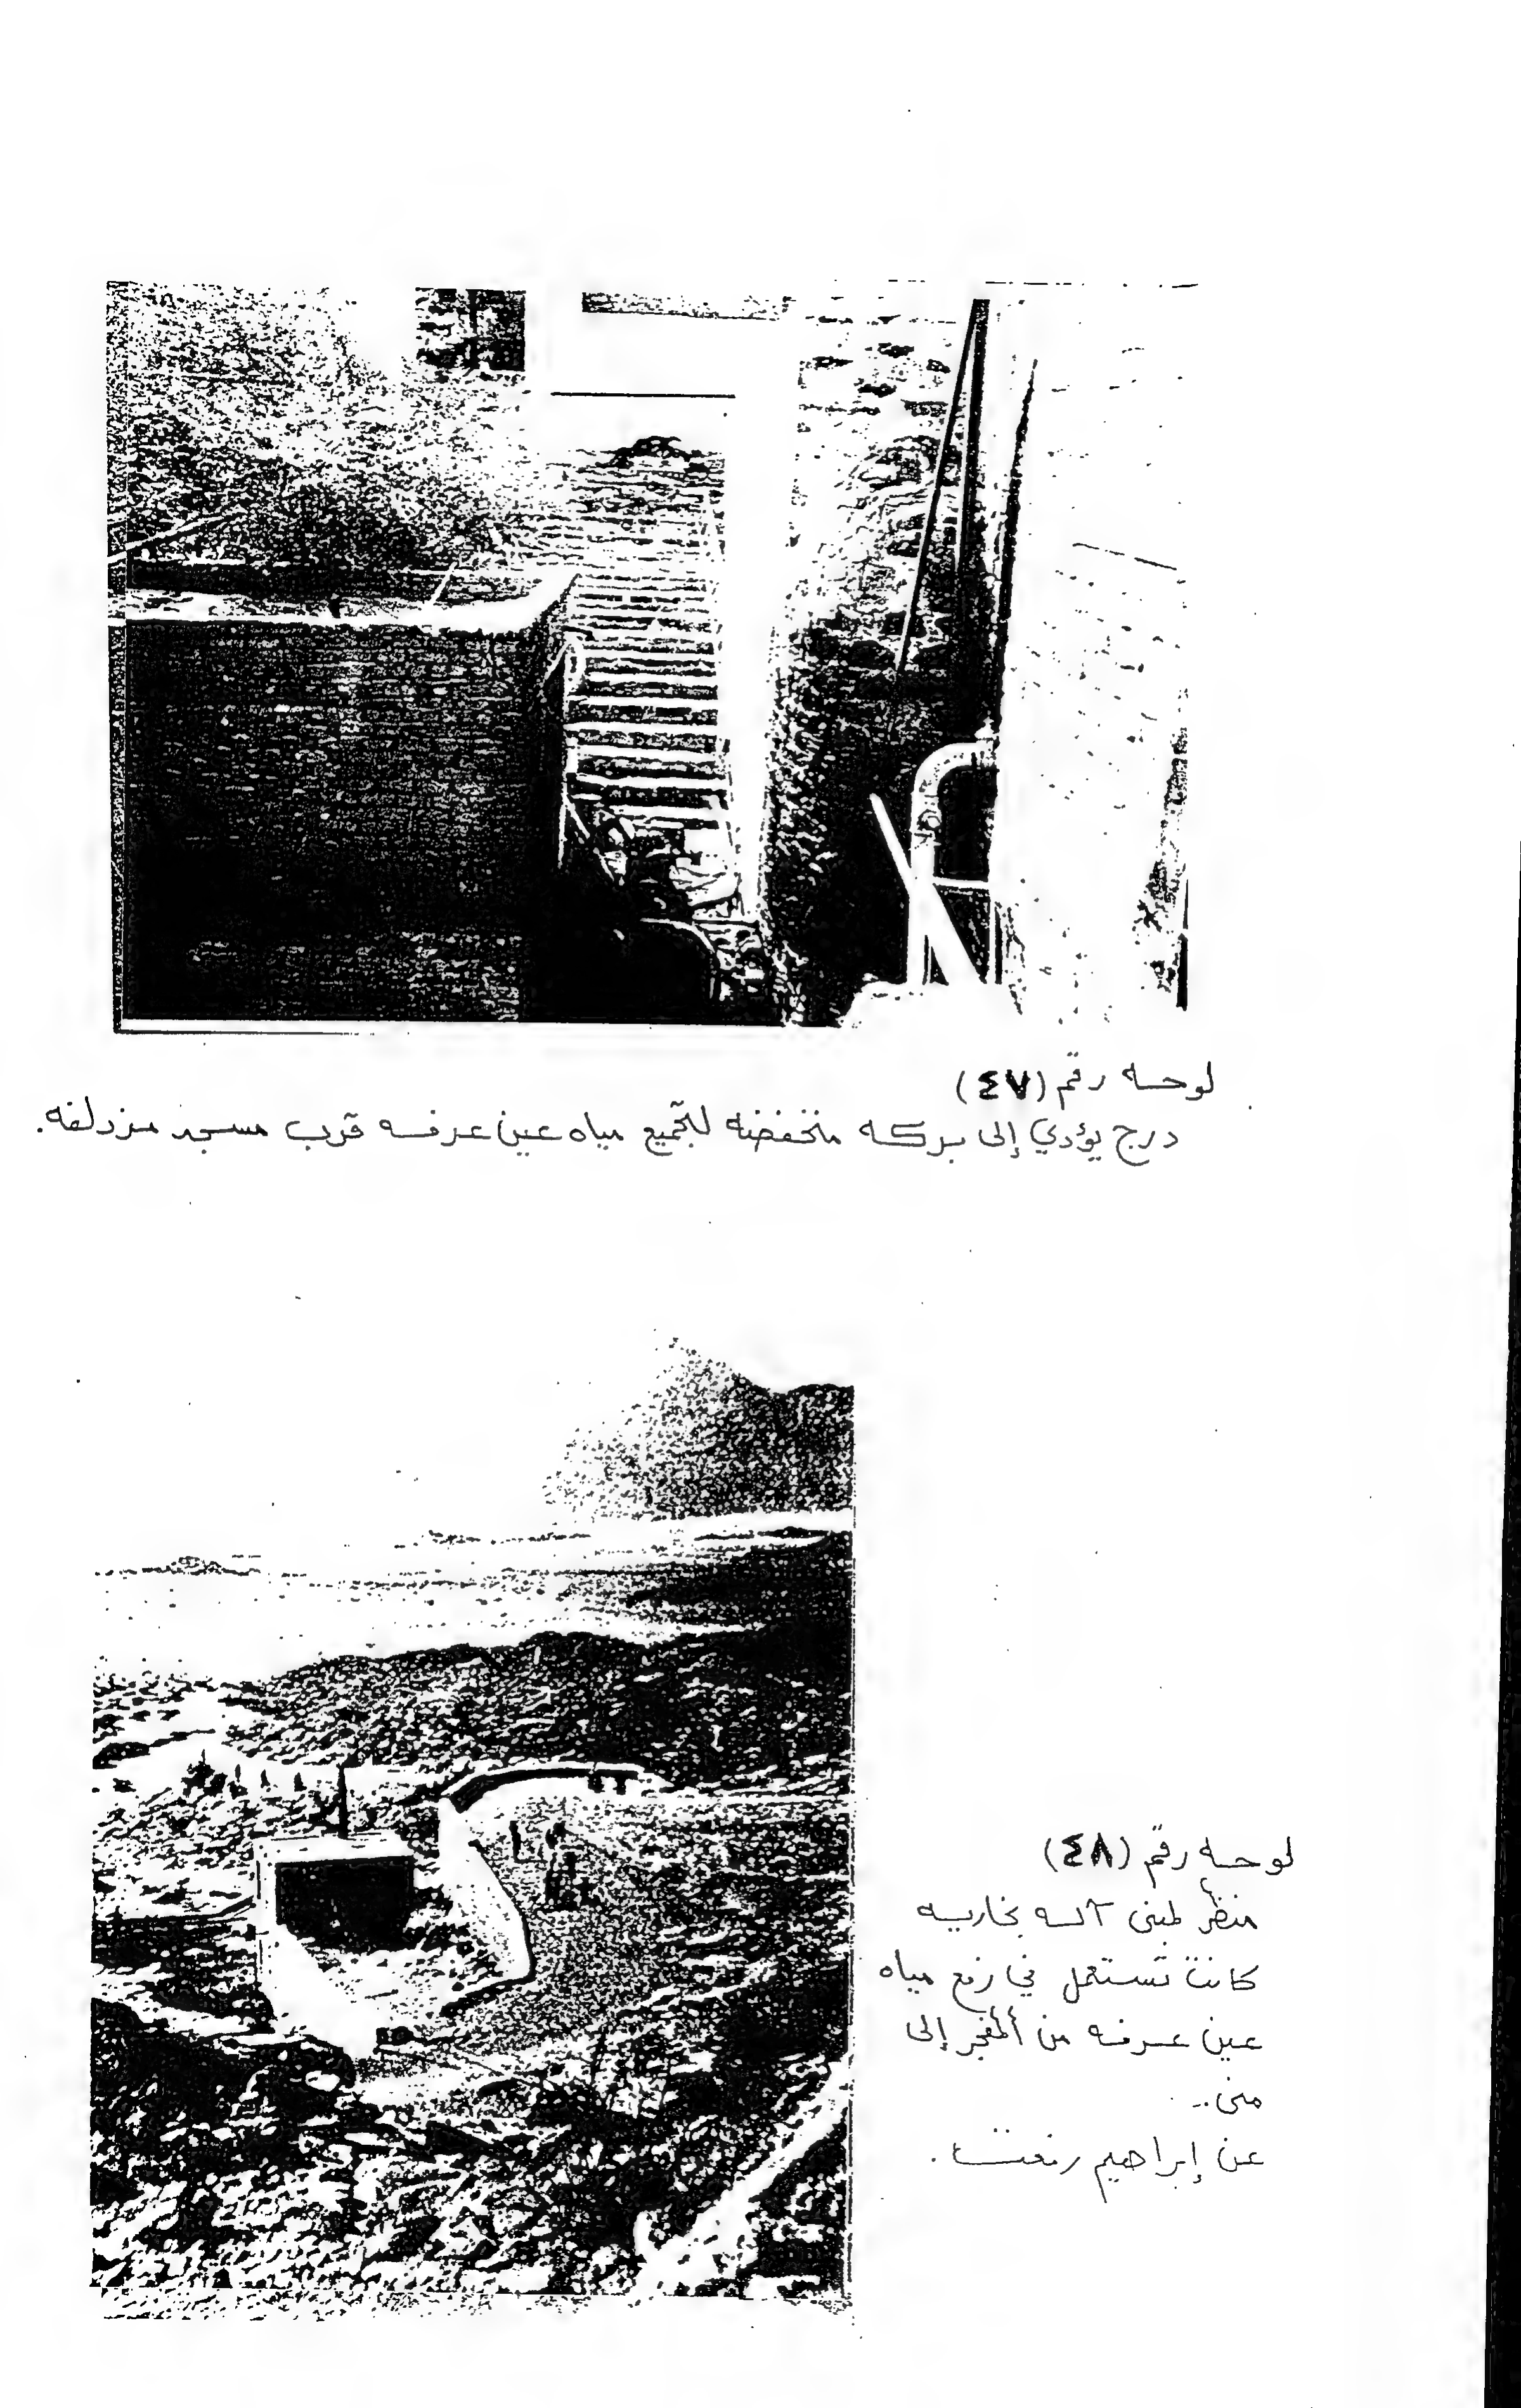 لوحه رقم (٤٧)
درج يؤدي إلى بركه منخفضه لتجميع مياه عين عرفه قرب مسجد مزدلفه.
لوحه رقم (٤٨)
منظر لمبنى آله بخاريه
كانت تستعمل في رفع مياه
عين عرفه من المفجر إلى
منى..
عن إبراهيم رفعت.